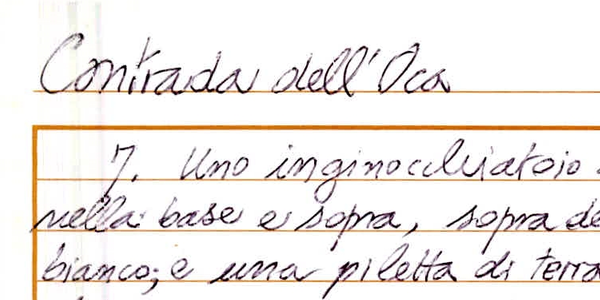 Contrada dell'Oca
7. Uno inginocchiatoio
nella base e sopra, sopra de
bianco; e una piletta di terra